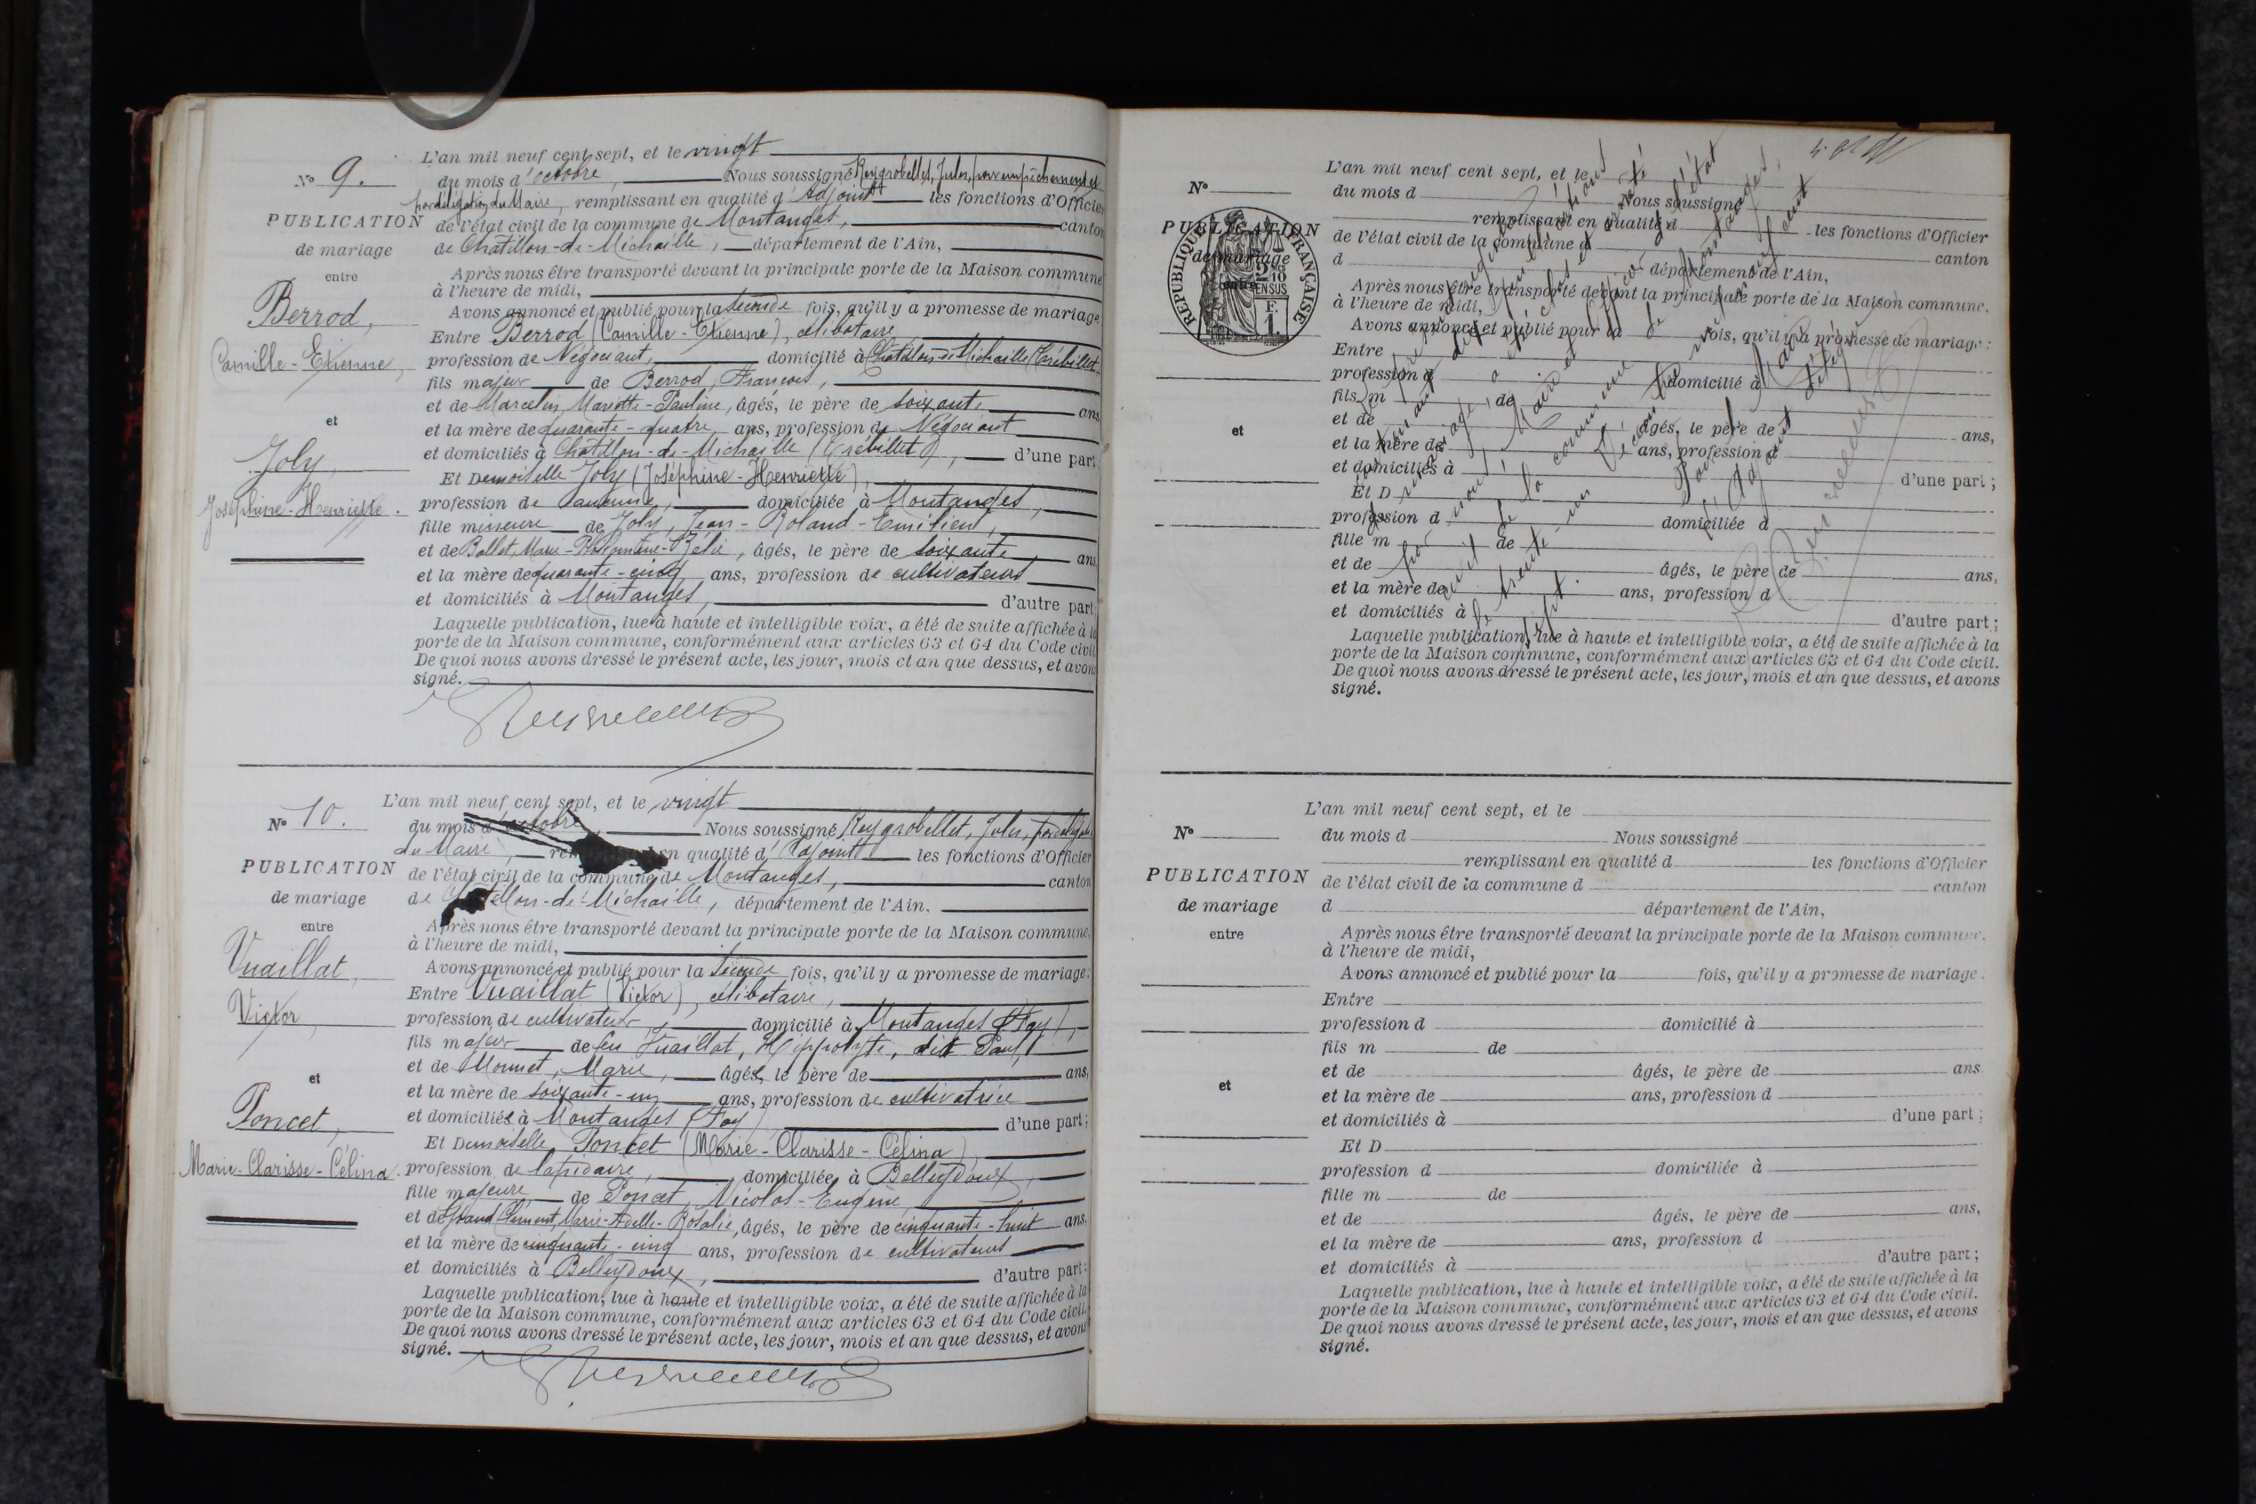 N° 9.
PUBLICATION
de mariage
entre
Berrod,
Camille-Etienne,
et
Joly,
Joséphine-Henriette.
L'an mil neuf cent sept, et le vingt
du mois d'octobre, Nous soussigné Reygrobellet, Jules, par empêchement et
par délégation du Maire, remplissant en qualité d'Adjoint les fonctions d'Officier
de l'état civil de la commune de Montanges, canton
de Châtillon-de-Michaille, département de l'Ain,
Après nous être transporté devant la principale porte de la Maison commune
à l'heure de midi,
Avons annoncé et publié pour la seconde fois, qu'il y a promesse de mariage
Entre Berrod (Camille-Etienne), célibataire
profession de Négociant, domicilié à Châtillon-de-Michaille (Trébillet)
fils majeur de Berrod, François,
et de Marcelin, Mariette-Pauline, âgés, le père de soixante ans
et la mère de quarante-quatre ans, profession de Négociant
et domiciliés à Châtillon-de-Michaille (Trébillet), d'une part
Et Demoiselle Joly (Joséphine-Henriette),
profession de aucune, domiciliée à Montanges,
fille mineure de Joly, Jean-Roland-Emilien,
et de Ballet, Marie- âgés, le père de soixante ans
et la mère de quarante-cinq ans, profession de cultivateurs
et domiciliés à Montanges, d'autre part
Laquelle publication, lue à haute et intelligible voix, a été de suite affichée à la
porte de la Maison commune, conformément aux articles 63 et 64 du Code civil
De quoi nous avons dressé le présent acte, les jour, mois et an que dessus, et avons
signé.
N° 10.
PUBLICATION
de mariage
entre
Vuaillat,
Victor,
et
Poncet,
Marie-Clarisse-Célina.
L'an mil neuf cent sept, et le vingt
du mois d'octobre, Nous soussigné Reygrobellet, Jules, par délégation
du Maire, en qualité d'Adjoint les fonctions d'Officier
de l'état civil de la commune de Montanges, canton
de Châtillon-de-Michaille, département de l'Ain.
Après nous être transporté devant la principale porte de la Maison commune,
à l'heure de midi,
Avons annoncé et publié pour la seconde fois, qu'il y a promesse de mariage:
Entre Vuaillat (Victor), célibataire,
profession de cultivateur, domicilié à Montanges (Fay),
fils majeur de feu Vuaillat, Hippolyte, dit Paul,
et de Monnet, Marie, âgés, le père de ans,
et la mère de soixante-un ans, profession de cultivatrice
et domiciliés à Montanges (Fay) d'une part;
Et Demoiselle Poncet (Marie-Clarisse-Célina),
profession de lapidaire, domiciliée à Belleydoux,
fille majeure de Poncet, Nicolas-Eugène,
et de Grand Clément, Marie-Adelle-Rosalie, âgés, le père de cinquante-huit ans
et la mère de cinquante-cinq ans, profession de cultivateurs
et domiciliés à Belleydoux, d'autre part:
Laquelle publication, lue à haute et intelligible voix, a été de suite affichée à la
porte de la Maison commune, conformément aux articles 63 et 64 du Code civil
De quoi nous avons dressé le présent acte, les jour, mois et an que dessus, et avons
signé.
N°
PUBLICATION
de mariage
entre
RÉPUBLIQUE FRANÇAISE
F. 1.
et
L'an mil neuf cent sept, et le
du mois d Nous soussigné
remplissant en qualité d les fonctions d'Officier
de l'état civil de la commune d canton
d département de l'Ain,
Après nous être transporté devant la principale porte de la Maison commune.
à l'heure de midi,
Avons annoncé et publié pour la fois, qu'il y a promesse de mariage:
Entre
profession d domicilié à
fils m de
et de âgés, le père de ans,
et la mère de ans, profession d
et domiciliés à d'une part;
Et D
profession d domiciliée à
fille m de
et de âgés, le père de ans,
et la mère de ans, profession d
et domiciliés à d'autre part;
Laquelle publication, lue à haute et intelligible voix, a été de suite affichée à la
porte de la Maison commune, conformément aux articles 63 et 64 du Code civil.
De quoi nous avons dressé le présent acte, les jour, mois et an que dessus, et avons
signé.
N°
PUBLICATION
de mariage
entre
et
L'an mil neuf cent sept, et le
du mois d Nous soussigné
remplissant en qualité d les fonctions d'Officier
de l'état civil de la commune d canton
d département de l'Ain,
Après nous être transporté devant la principale porte de la Maison commune.
à l'heure de midi,
Avons annoncé et publié pour la fois, qu'il y a promesse de mariage.
Entre
profession d domicilié à
fils m de
et de âgés, le père de ans
et la mère de ans, profession d
et domiciliés à d'une part;
Et D
profession d domiciliée à
fille m de
et de âgés, le père de ans,
et la mère de ans, profession d
et domiciliés à d'autre part;
Laquelle publication, lue à haute et intelligible voix, a été de suite affichée à la
porte de la Maison commune, conformément aux articles 63 et 64 du Code civil.
De quoi nous avons dressé le présent acte, les jour, mois et an que dessus, et avons
signé.